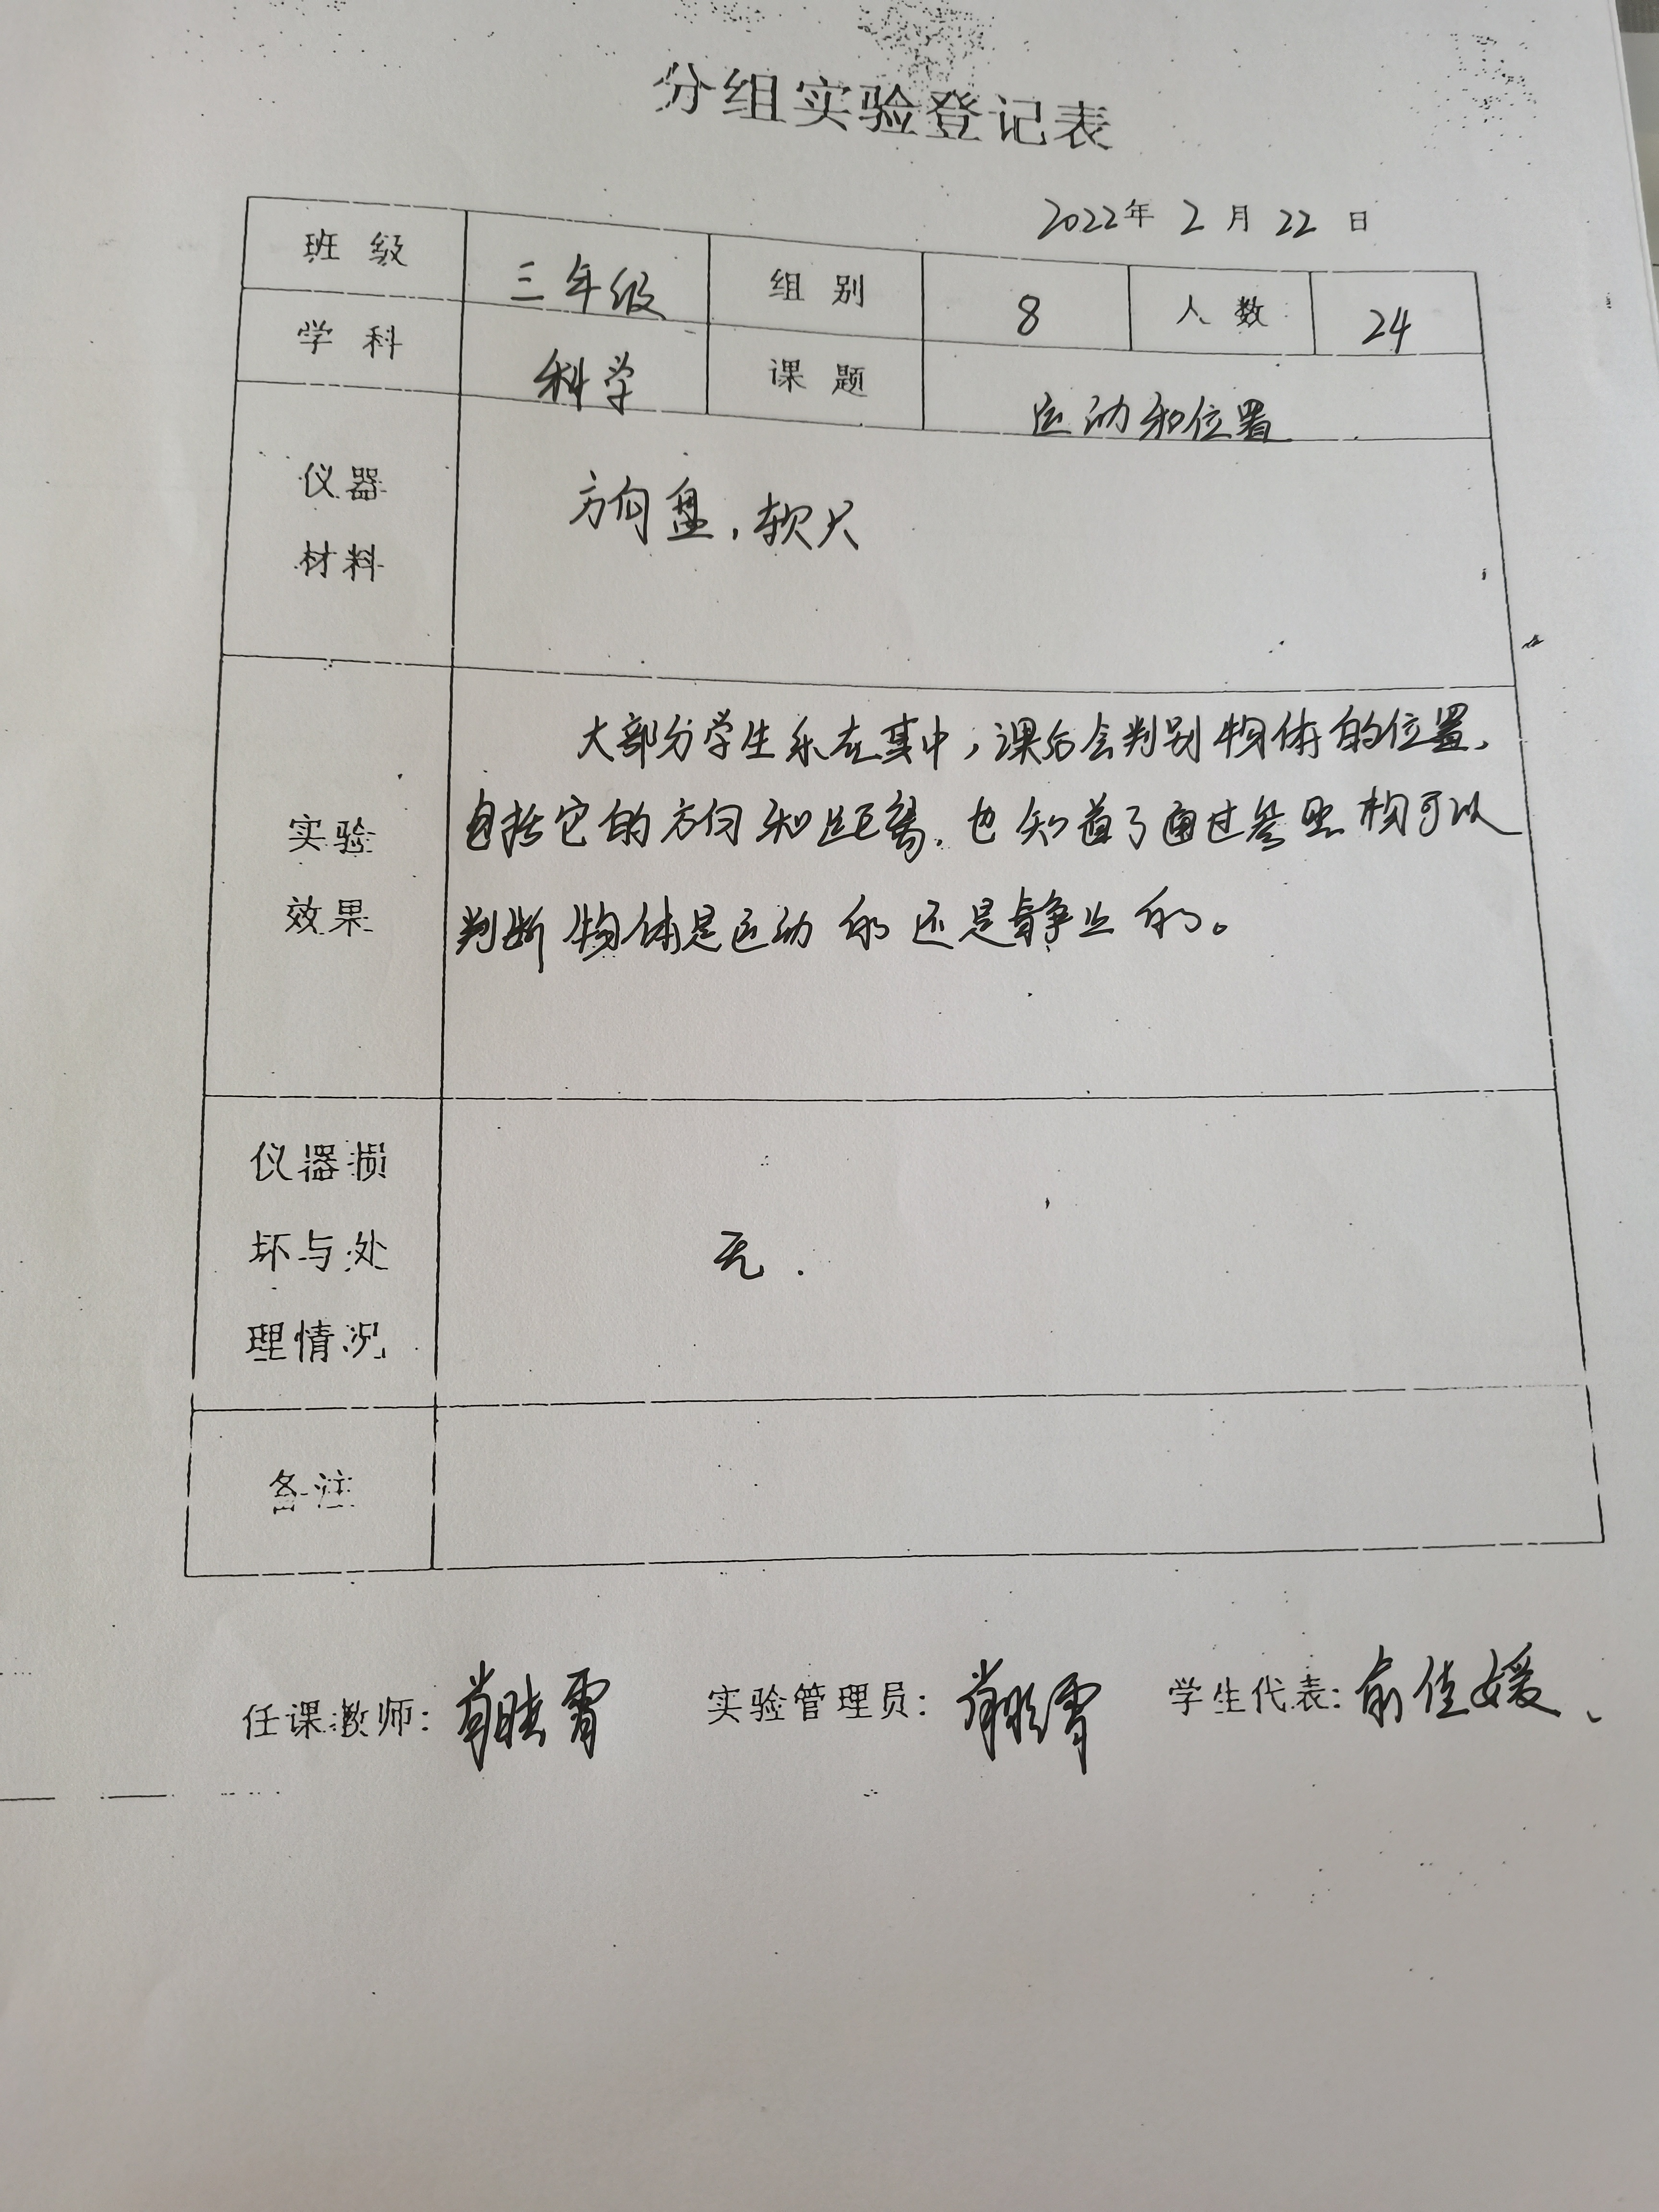 分组实验登记表
2022年 2 月 22 日
班 级 三年级 组 别 8 人 数 24
学 科 科学 课 题 运动和位置
仪器
材料
方向盘，软尺
实验
效果
大部分学生乐在其中，课后会判别物体的位置、
包括它的方向和距离，也知道了通过参照物可以
判断物体是运动的还是静止的。
仪器损
坏与处
理情况
无.
备注
任课教师: 实验管理员: 学生代表: 俞佳媛、